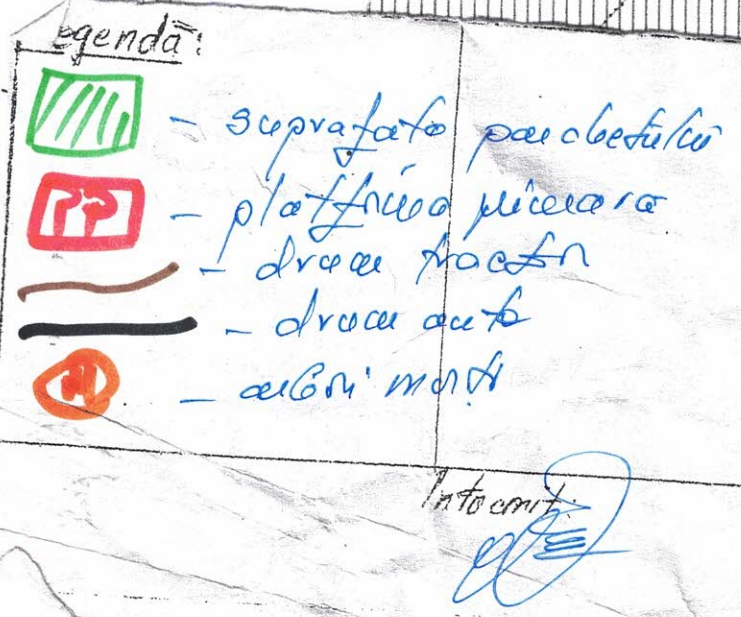 Legendă:
- suprafața parchetului
PP - platforma primara
- drum tractor
- drum auto
- arbori morți
Intocmit: